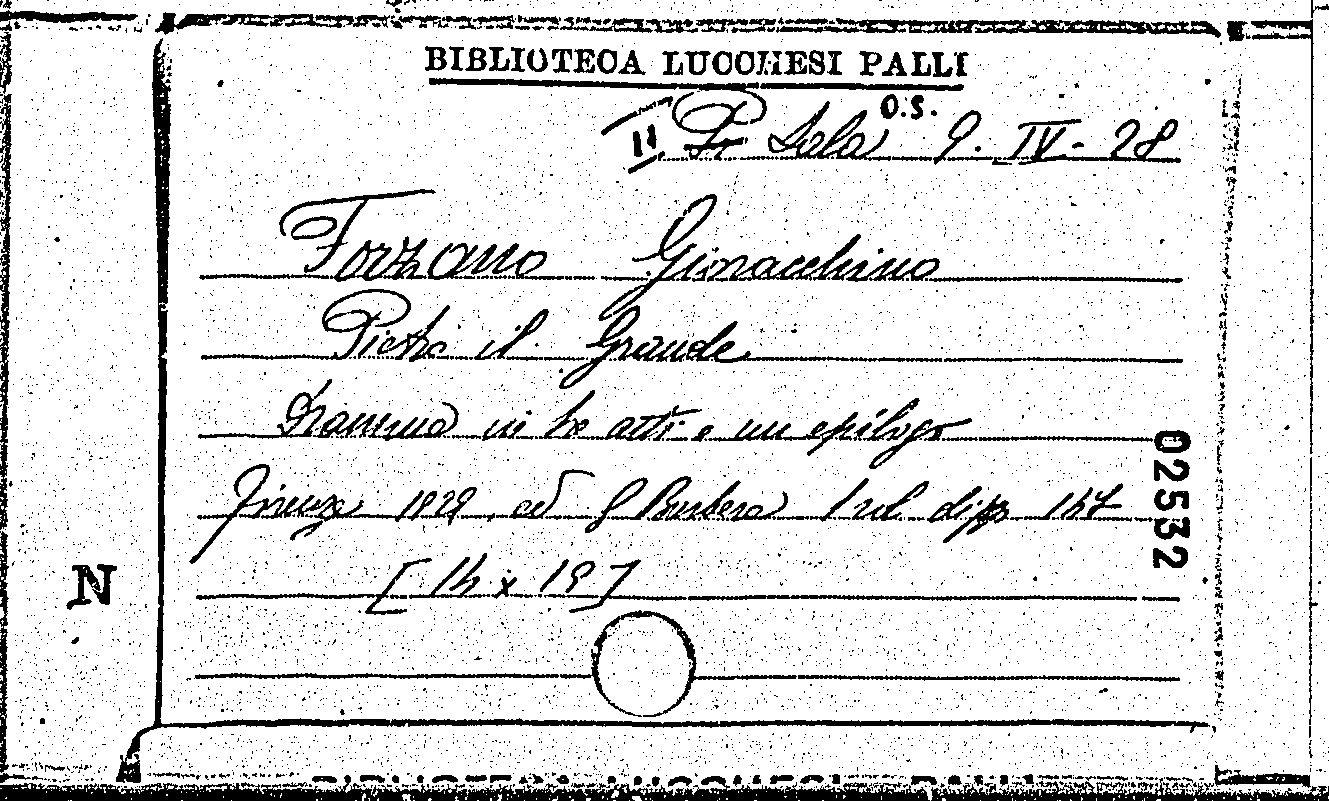 BIBLIOTECA LUCCHESI PALLI
II Sala O.S. 9. IV - 28
Forzano Gioacchino
Pietro il Grande
Dramma in tre atti e un epilogo
Firenze 1929, ed G Barbera 1 vol di pp 147
[14 x 19]
02532
N
BIBLIOTECA LUCCHESI PALLI